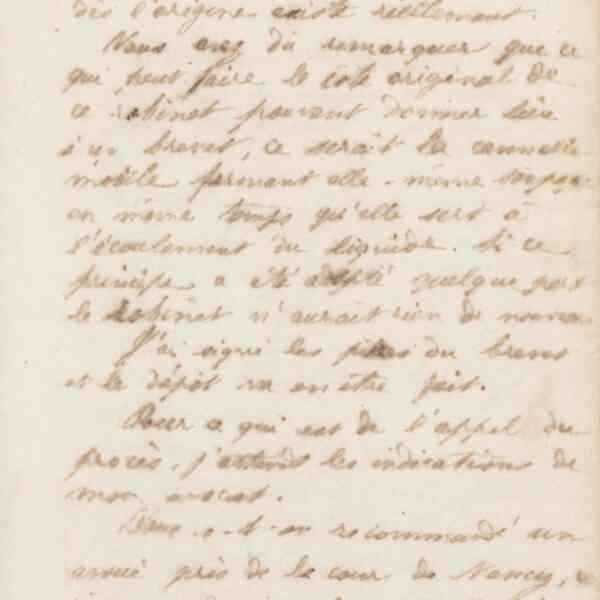 dès l'origine existe réellement.
Vous avez dû remarquer que ce
qui peut faire le côté original de
ce robinet pouvant donner lieu
à un brevet, ce serait la cannelle
mobile formant elle-même soupape
en même temps qu'elle sert à
l'écoulement du liquide. Si ce
principe a été adopté quelque part
le robinet n'aurait rien de nouveau
J'ai signé les pièces du brevet
et le dépôt va en être fait.
Pour ce qui est de l'appel du
procès, j'attends les indications de
mon avocat.
a-t-on recommandé un
avoué près de la cour de Nancy,